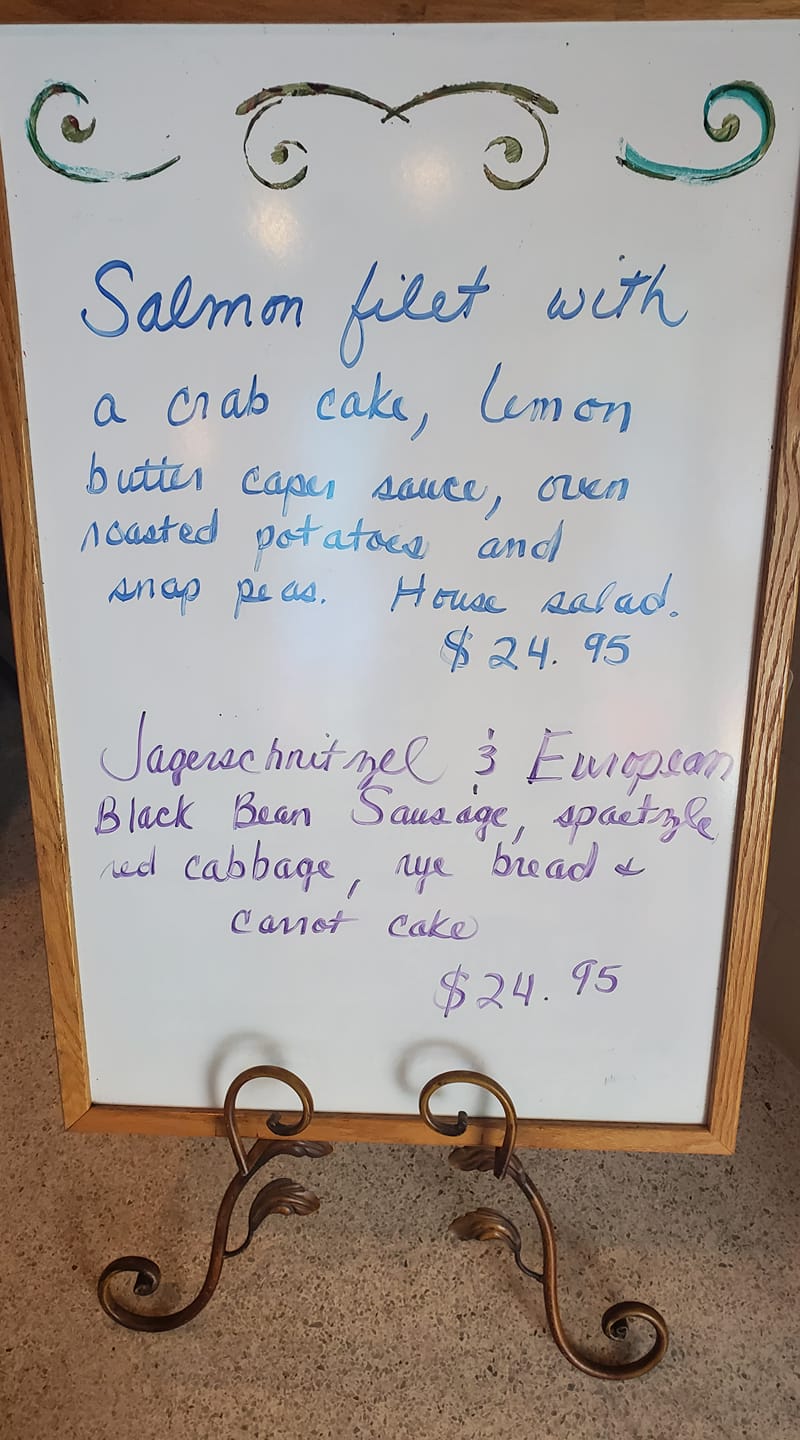 Salmon filet with
a crab cake, lemon
butter caper sauce, oven
roasted potatoes and
snap peas. House salad.
$24.95
Jagerschnitzel & European
Black Bean Sausage, spaetzle
red cabbage, rye bread &
carrot cake
$24.95